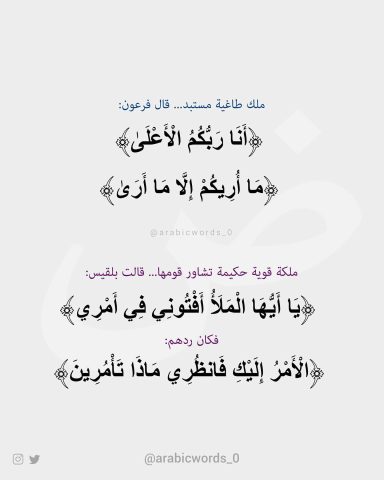 ملك طاغية مستبد... قال فرعون:
﴿أَنَا رَبُّكُمُ الْأَعْلَىٰ﴾
﴿مَا أُرِيكُمْ إِلَّا مَا أَرَىٰ﴾
@arabicwords_0
ملكة قوية حكيمة تشاور قومها... قالت بلقيس:
﴿يَا أَيُّهَا الْمَلَأُ أَفْتُونِي فِي أَمْرِي﴾
فكان ردهم:
﴿الْأَمْرُ إِلَيْكِ فَانظُرِي مَاذَا تَأْمُرِينَ﴾
@arabicwords_0
ض